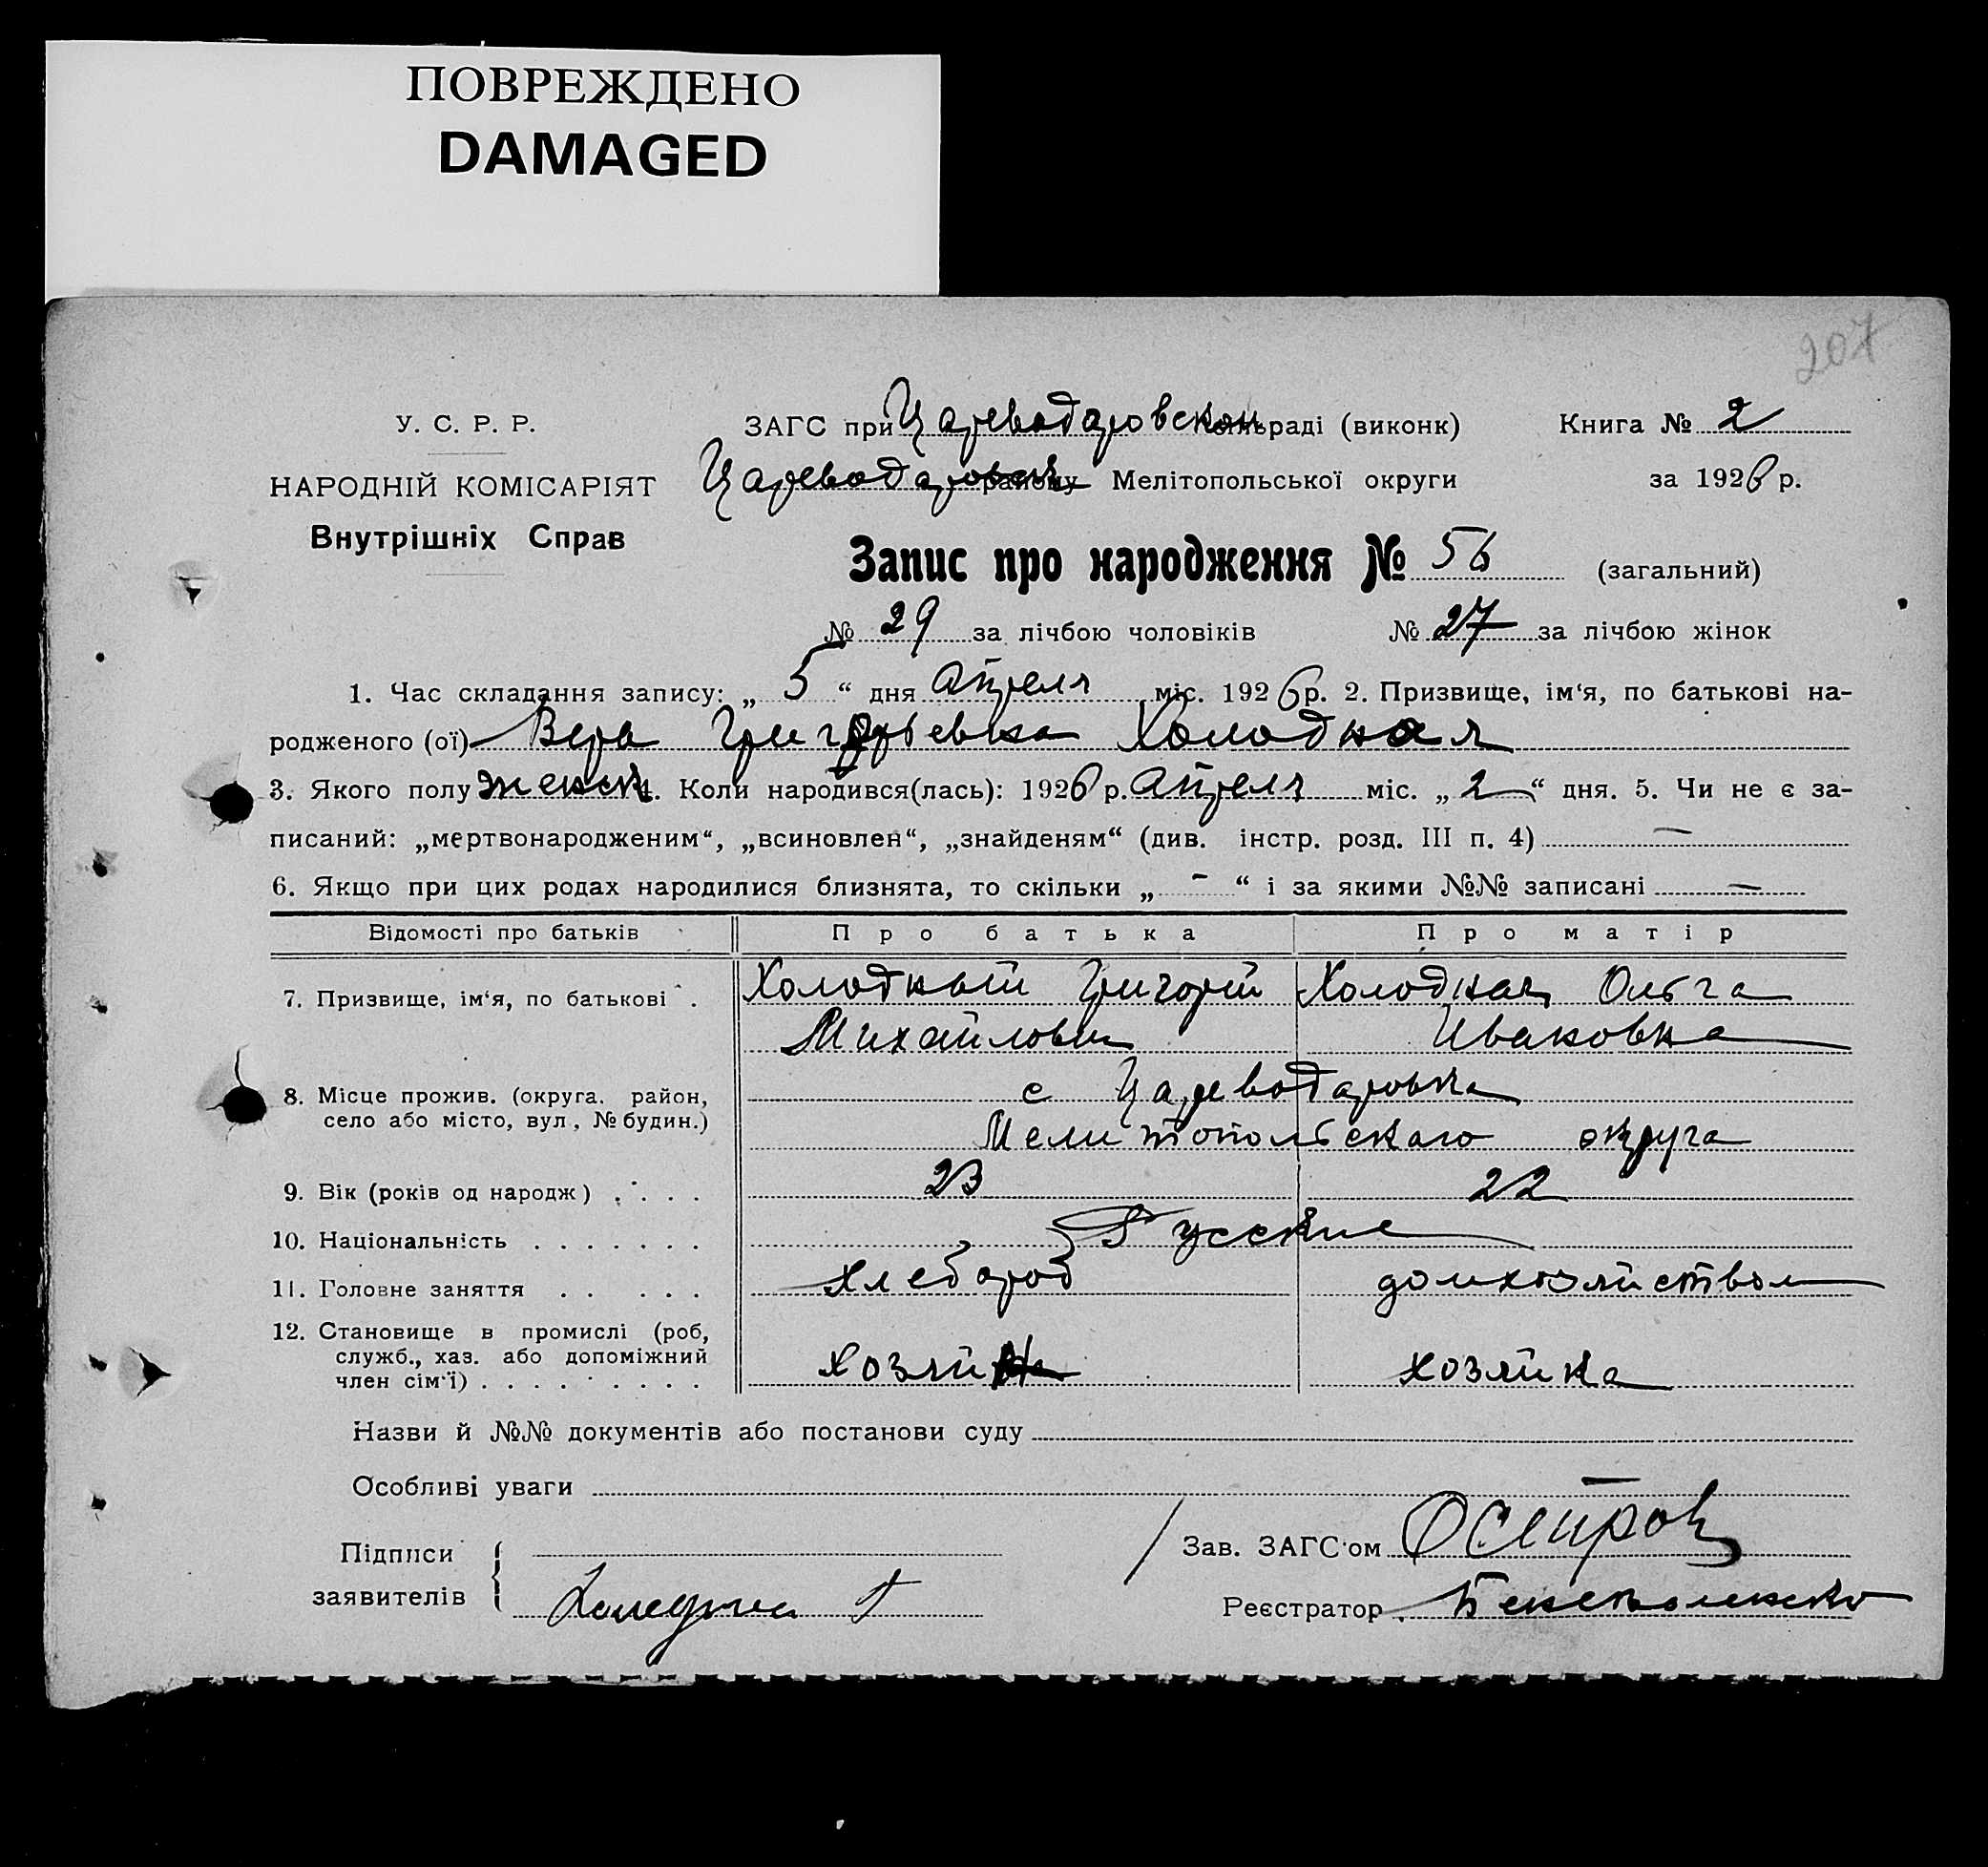 ПОВРЕЖДЕНО
DAMAGED
207
У. С. Р. Р.
НАРОДНІЙ КОМІСАРІЯТ
Внутрішніх Справ
ЗАГС при Цареводаровском сільраді (виконк)
Книга № 2
Цареводаровск району Мелітопольської округи
за 1926 р.
Запис про народження № 56 (загальний)
№ 29 за лічбою чоловіків № 27 за лічбою жінок
1. Час складання запису: „ 5 “ дня апреля міс. 1926 р. 2. Призвище, ім‘я, по батькові на-
родженого (ої) Вера Григорьевна Холодная
3. Якого полу женск 4. Коли народився(лась): 1926 р. апреля міс. „ 2 “ дня. 5. Чи не є за-
писаний: „мертвонародженим“, „всиновлен“, „знайденям“ (див. інстр. розд. III п. 4) —
6. Якщо при цих родах народилися близнята, то скільки „ - “ і за якими №№ записані —
Відомості про батьків Про батька Про матір
7. Призвище, ім‘я, по батькові . Холодный Григорий Холодная Ольга
Михайлович Ивановна
8. Місце прожив. (округа. район, село або місто, вул, № будин.) с Цареводаровка
Мелитопольскаго округа
9. Вік (років од народж) . . . . 23 22
10. Національність . . . . . . . Русские
11. Головне заняття . . . . . хлебороб домхозяйством
12. Становище в промислі (роб,
служб., хаз. або допоміжний
член сім‘ї) . . . . . . . . . хозяин хозяйка
Назви й №№ документів або постанови суду
Особливі уваги
Підписи
заявителів
Зав. ЗАГС‘ом Осетров
Реєстратор